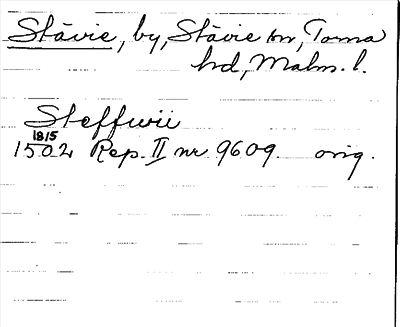 Stävie, by, Stävie sn, Torna
hd, Malm. l.
Steffwii
18/5
1502 Rep. II nr 9609 orig.